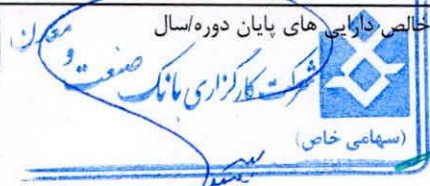 خالص دارایی های پایان دوره/سال
شرکت کارگزاری بانک صنعت و معدن
(سهامی خاص)